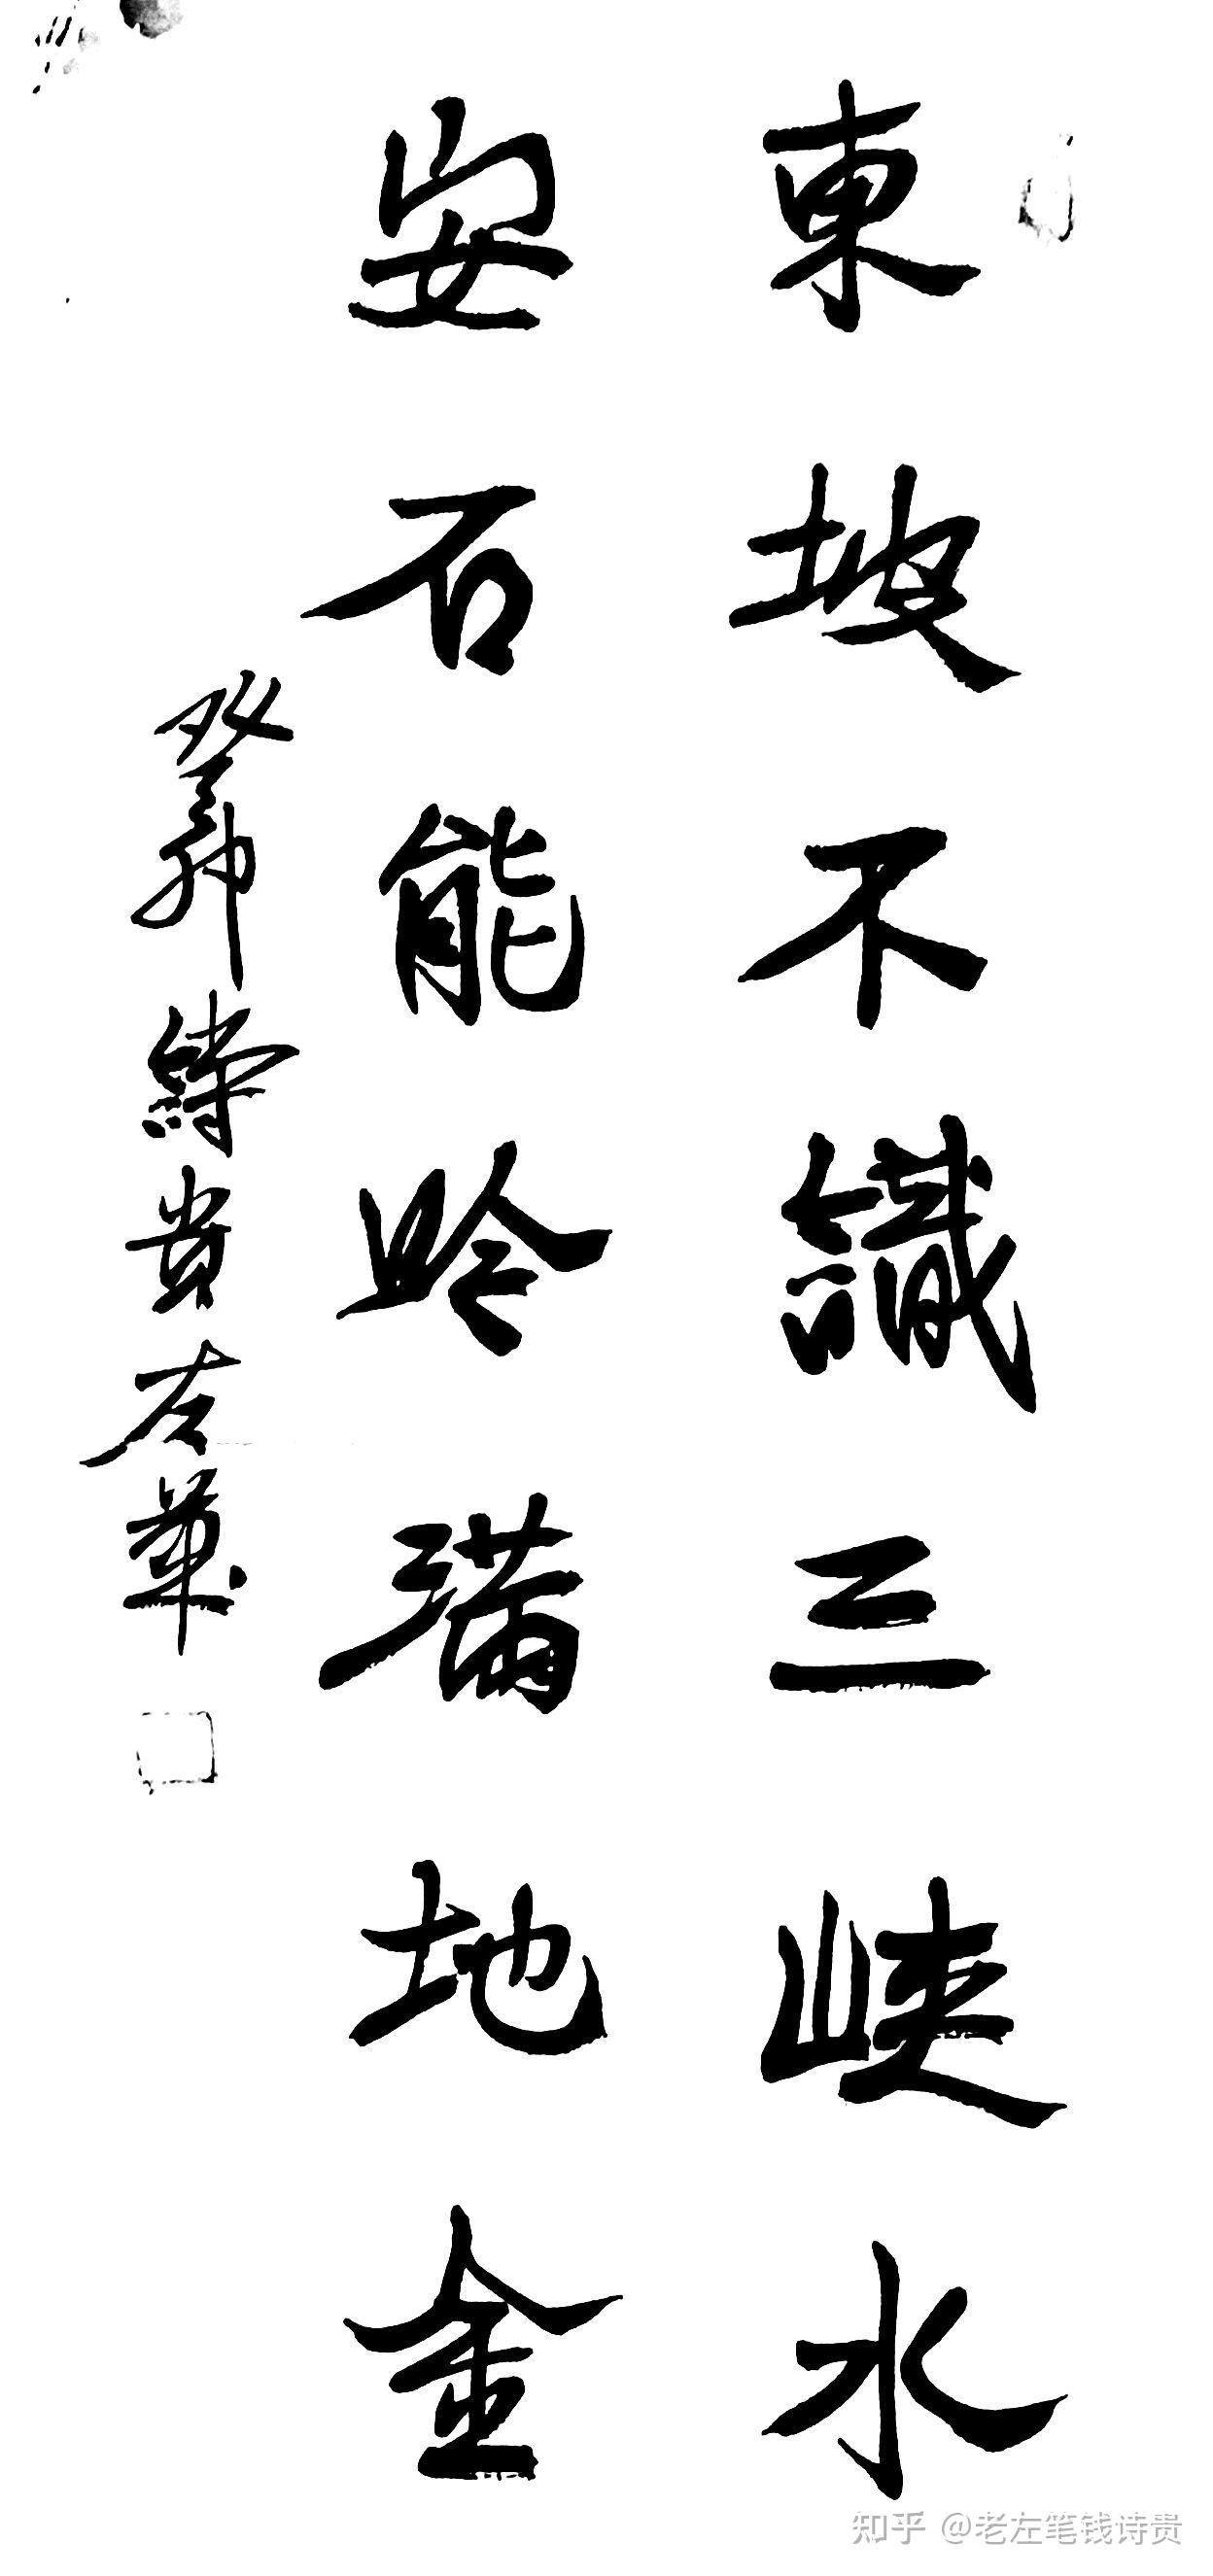 東坡不識三峽水
安石能吟满地金
癸卯 貴左筆
知乎 @老左笔钱诗贵